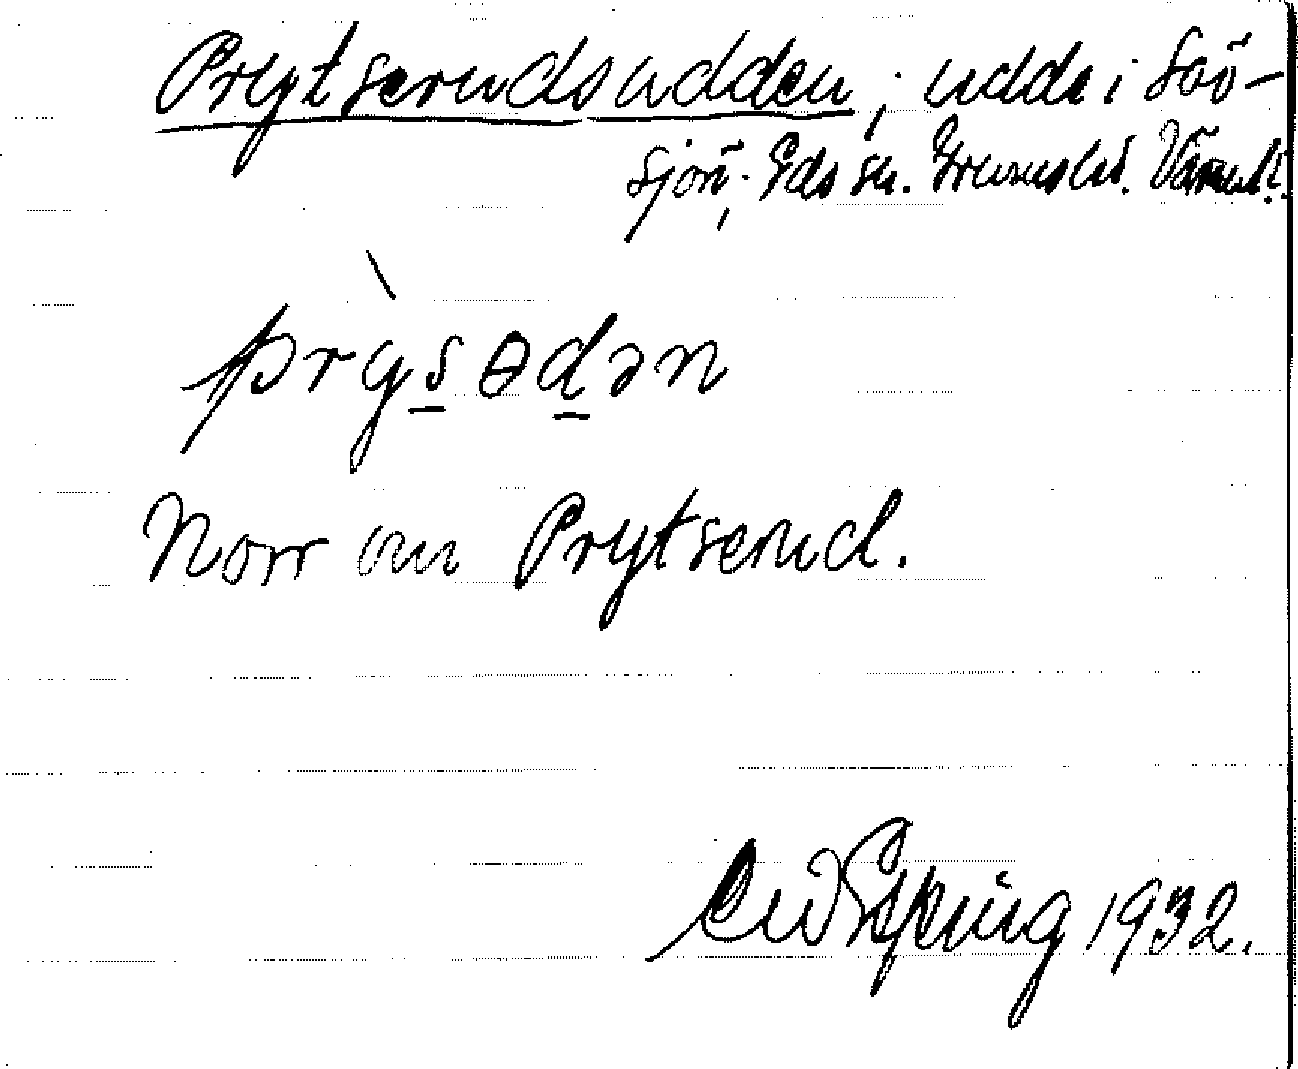 Prytserudsudden, udde i Söö-
sjön, Eds sn. Grums hd. Värml.
prỳsɵdən
Norr om Prytserud.
1932.